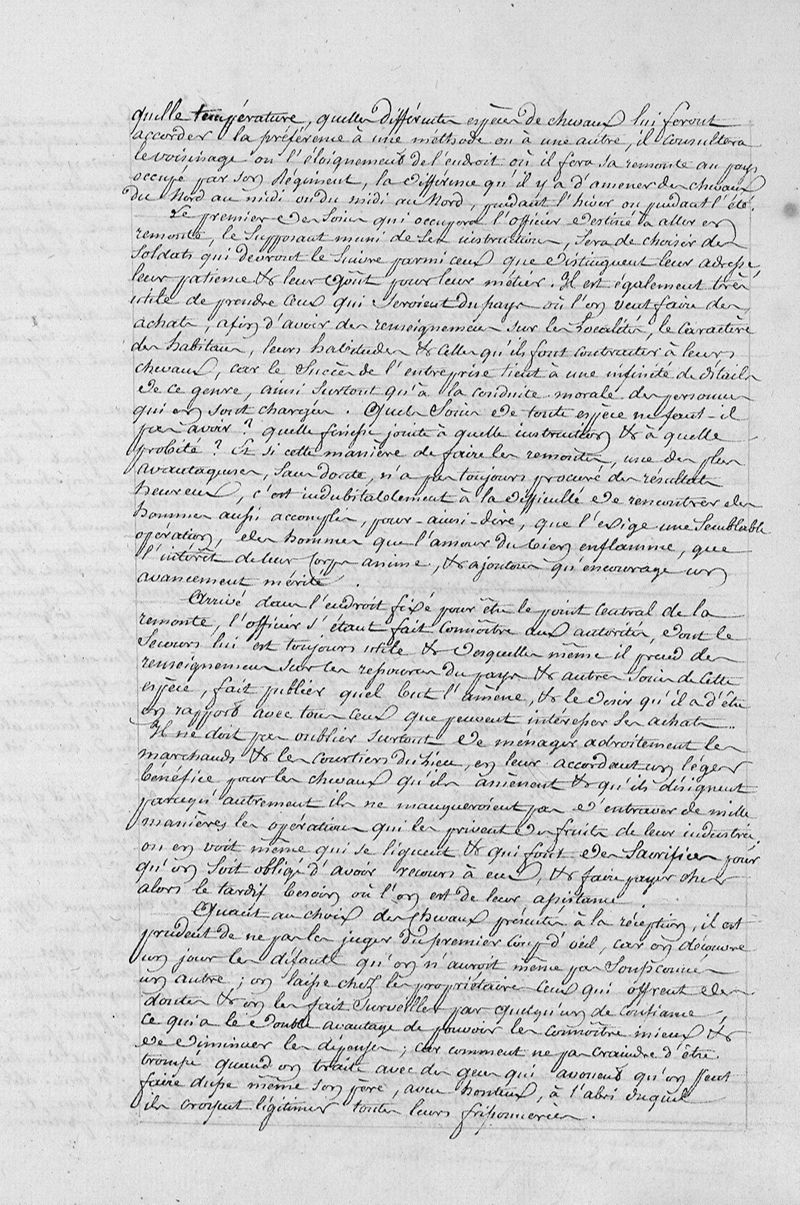 quelle température, quelles différentes espèces de chevaux lui feront
accorder la préférence à une méthode ou à une autre, il consultera
le voisinage ou l'éloignement de l'endroit où il fera sa remonte au pays
occupé par son Régiment, la différence qu'il y a d'amener des chevaux
du Nord au midi ou du midi au Nord, pendant l'hiver ou pendant l'été.
Le premier des soins qui occupera l'officier destiné à aller en
remonte, le supposant muni de ses instructions, sera de choisir des
soldats qui devront le suivre parmi ceux que distinguent leur adresse,
leur patience & leur goût pour leur métier. Il est également très
utile de prendre ceux qui seroient du pays où l'on veut faire des
achats, afin d'avoir des renseignemens sur les localités, le caractère
des habitans, leurs habitudes & celles qu'ils font contracter à leurs
chevaux, car le succès de l'entreprise tient à une infinité de détails
de ce genre, ainsi surtout qu'à la conduite morale des personnes
qui en sont chargées. Quels soins de toute espèce ne faut-il
pas avoir ? quelle finesse jointe à quelle instruction & à quelle
probité ? Et si cette manière de faire les remontes, une des plus
avantageuses, sans doute, n'a pas toujours procuré des résultats
heureux, c'est indubitablement à la difficulté de rencontrer des
hommes aussi accomplis, pour-ainsi-dire, que l'exige une semblable
opération, des hommes que l'amour du bien enflamme, que
l'intérêt de leur Corps anime, & ajoutons qu'encourage un
avancement mérité.
Arrivé dans l'endroit fixé pour être le point central de la
remonte, l'officier s'étant fait connoître aux autorités, dont le
secours lui est toujours utile & desquelles même il prend des
renseignemens sur les ressources du pays & autres soins de cette
espèce, fait publier quel but l'amène, & le desir qu'il a d'être
en rapport avec tous ceux que peuvent intéresser ses achats.
Il ne doit pas oublier surtout de ménager adroitement les
marchands & les courtiers du lieu, en leur accordant un léger
bénéfice pour les chevaux qu'ils amènent & qu'ils désignent
parcequ'autrement ils ne manqueroient pas d'entraver de mille
manières les opérations qui les privent des fruits de leur industrie,
on en voit même qui se liguent & qui font des sacrifices pour
qu'on soit obligé d'avoir recours à eux, & faire payer cher
alors le tardif besoin où l'on est de leur assistance.
Quant au choix des chevaux présentés à la réception, il est
prudent de ne pas les juger du premier coup d'œil, car on découvre
un jour les défauts qu'on n'auroit même pas soupçonnés
un autre ; on laisse chez les propriétaires ceux qui offrent des
doutes & on les fait surveiller par quelqu'un de confiance,
ce qui a le double avantage de pouvoir les connoître mieux &
de diminuer les dépenses ; car comment ne pas craindre d'être
trompé quand on traite avec des gens qui avouent qu'on peut
faire dupe même son père, aveu honteux, à l'abri duquel
ils croient légitimer toutes leurs friponneries.